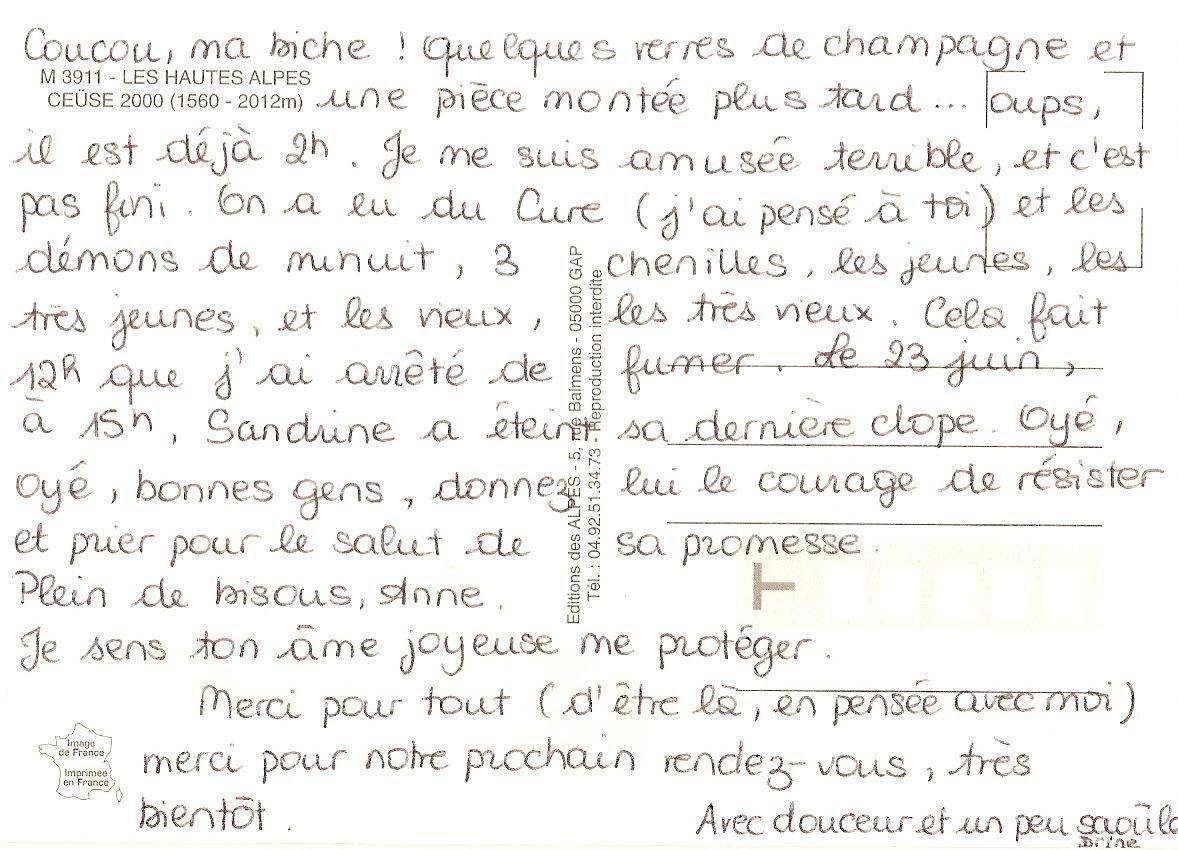 Coucou, ma biche ! Quelques verres de champagne et
M 3911 - LES HAUTES ALPES
CEÜSE 2000 (1560 - 2012m)
une pièce montée plus tard... oups,
il est déjà 2h. Je me suis amusée terrible, et c'est
pas fini. On a eu du Cure (j'ai pensé à toi) et les
démons de minuit, 3 chenilles, les jeunes, les
très jeunes, et les vieux, les très vieux. Cela fait
12h que j'ai arrêté de fumer. Le 23 juin,
à 15h, Sandrine a éteint sa dernière clope. Oyé,
Oyé, bonnes gens, donnez lui le courage de résister
et prier pour le salut de sa promesse.
Plein de bisous, Anne.
Je sens ton âme joyeuse me protéger.
Merci pour tout (d'être là, en pensée avec moi)
merci pour notre prochain rendez-vous, très
bientôt.
Avec douceur et un peu saoûle
Drine
Editions des ALPES - 5, rue Balmens - 05000 GAP
Tél. : 04.92.51.34.73 - Reproduction interdite
Image
de France
Imprimée
en France